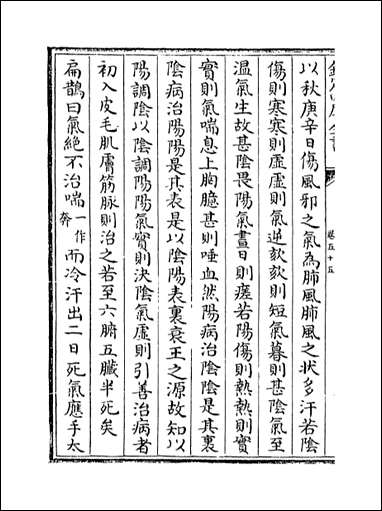 以秋庚辛日傷風邪之氣為肺風肺風之狀多汗若陰
傷則寒寒則虛虛則氣逆欬欬則短氣暮則甚陰氣至
溫氣生故甚陰畏陽氣晝日則瘥若陽傷則熱熱則實
實則氣喘息上胸臆甚則唾血然陽病治陰陰是其裏
陰病治陽陽是其表是以陰陽表裏衰王之源故知以
陽調陰以陰調陽陽氣實則決陰氣虛則引善治病者
初入皮毛肌膚筋脉則治之若至六腑五臟半死矣
扁鵲曰氣絕不治喘一作奔而冷汗出二日死氣應手太
卷五十五